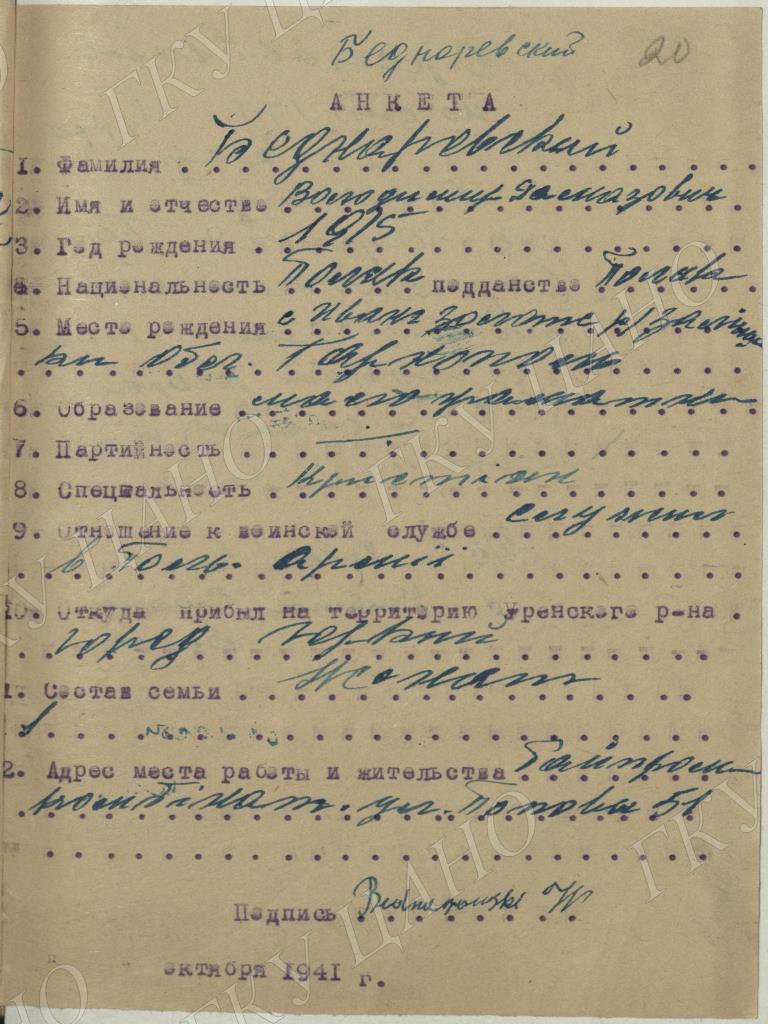 Беднаревский 20
АНКЕТА
1. Фамилия . Беднаревский
2. Имя и отчество Володимир Дамазович
3. Год рождения . 1915
4. Национальность Поляк подданство Поляк
5. Место рождения с. Иване золоте р/заліщи
ки обл. Тарнополь
6. Образование . мало граматни
7. Партийность . —
8. Специальность . Христіан
9. Отношение к воинской службе . служил
в Поль. армії
10. Откуда прибыл на территорию Уренского р-на .
город Горкий
1. Состав семьи . Жонат
1
2. Адрес места работы и жительства Райпром
комбінат. ул. Попова 51
Подпись Bednarowski W
" " октября 1941 г.
ГКУ ЦАНО